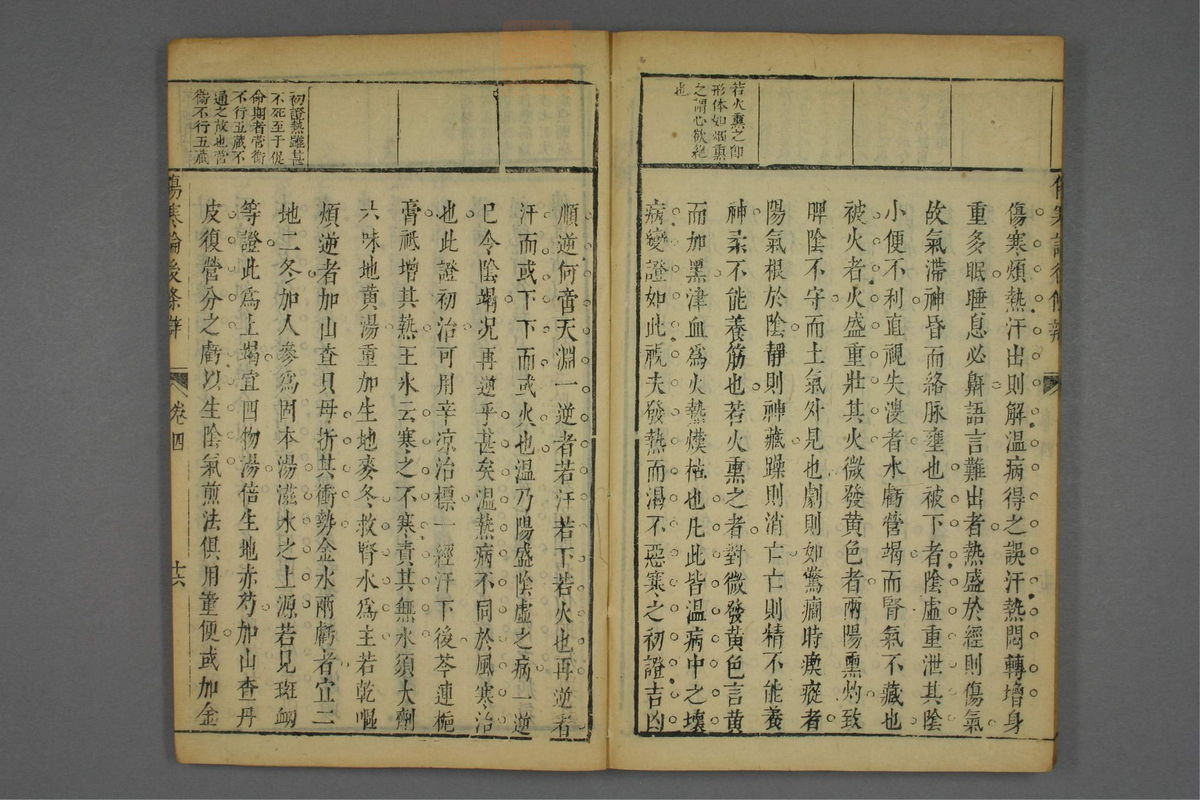 若火熏之卽
形体如烟熏
之謂心欲絕
也
傷寒論後條辨
傷寒煩熱汗出則解溫病得之誤汗熱悶轉增身
重多眠睡息必鼾語言難出者熱盛於經則傷氣
故氣滯神昏而絡脉壅也被下者陰虛重泄其陰
小便不利直視失溲者水虧營竭而腎氣不藏也
被火者火盛重壯其火微發黃色者兩陽熏灼致
脾陰不守而土氣外見也劇則如驚癎時瘈瘲者
陽氣根於陰靜則神藏躁則消亡亡則精不能養
神柔不能養筋也若火熏之者對微發黃色言黃
而加黑津血爲火熱熯枯也凡此皆溫病中之壞
病變證如此視夫發熱而渴不惡寒之初證吉凶
初證熱雖甚
不死至于促
命期者營衛
不行五藏不
通之故也營
衛不行五藏
順逆何啻天淵一逆者若汗若下若火也再逆者
汗而或下下而或火也溫乃陽盛陰虛之病一逆
已令陰竭况再逆乎甚矣溫熱病不同於風寒治
也此證初治可用辛凉治標一經汗下後芩連梔
膏祗增其熱王氷云寒之不寒責其無水須大劑
六味地黃湯重加生地麥冬救腎水爲主若乾嘔
煩逆者加山查貝母折其衝勢金水兩虧者宜二
地二冬加人參爲固本湯滋水之上源若見斑衂
等證此爲上竭宜四物湯倍生地赤芍加山查丹
皮復營分之虧以生陰氣煎法俱用童便或加金
傷寒論後條辨 卷四 十六